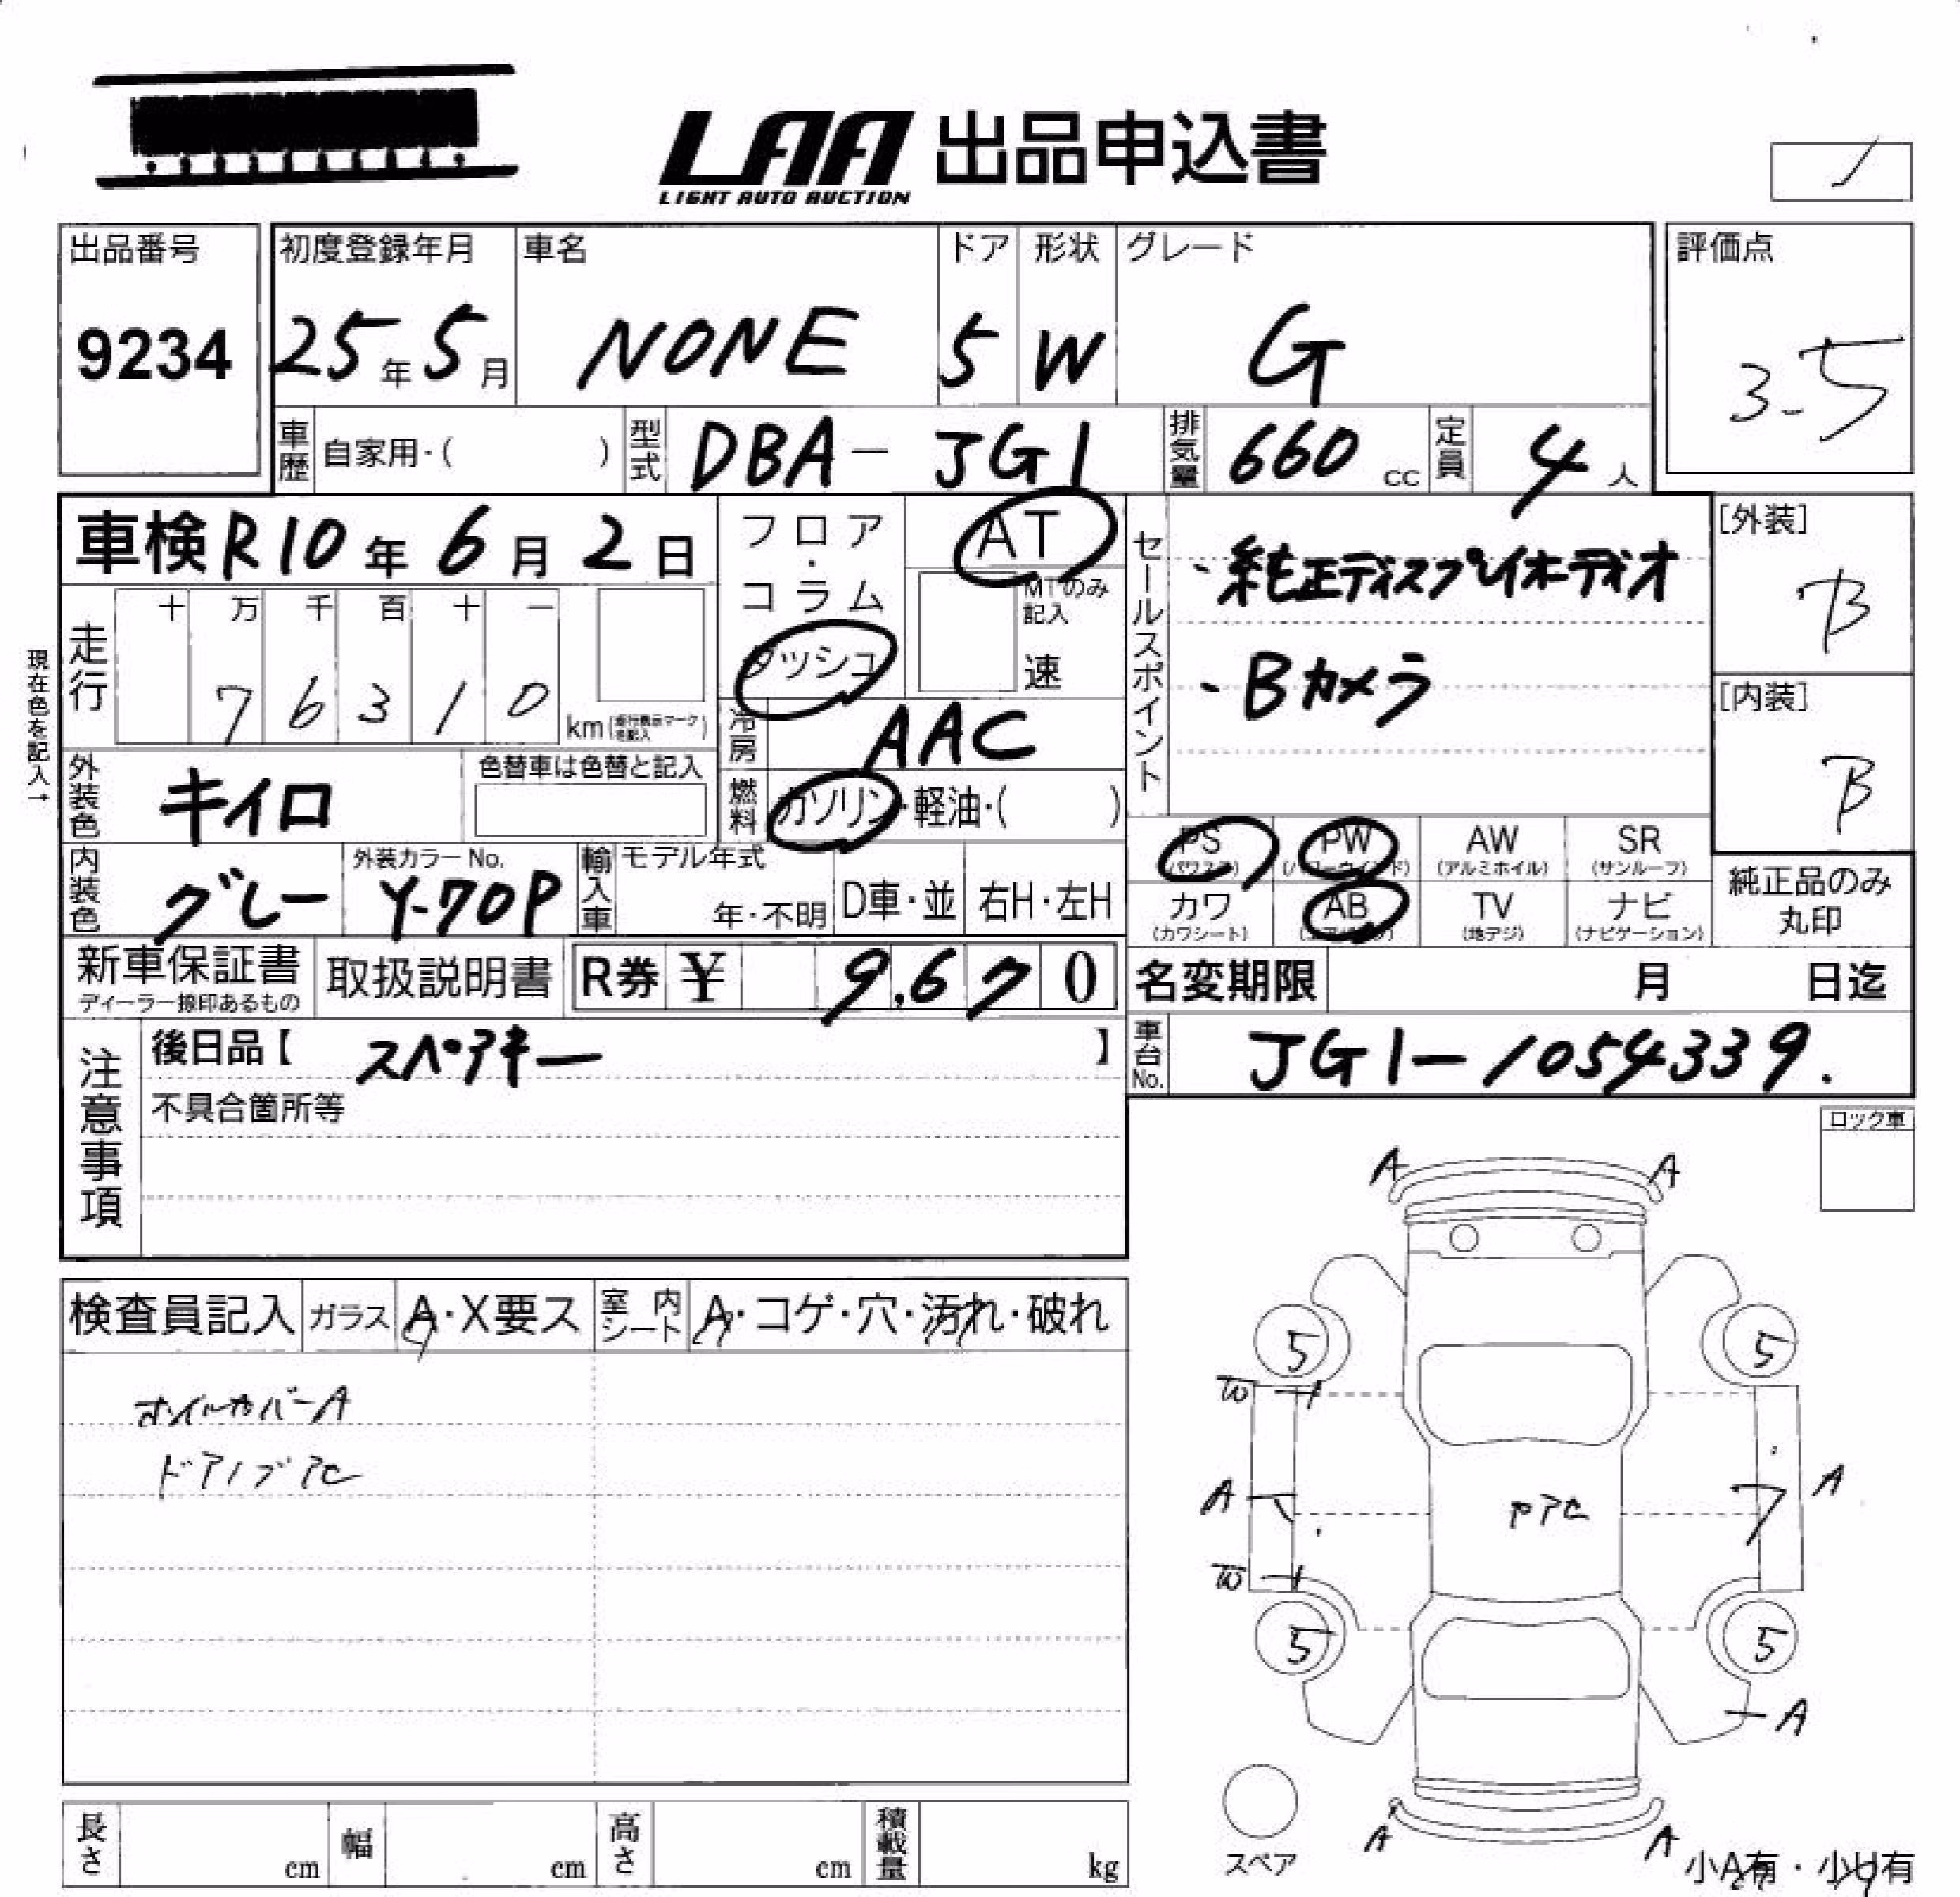 LAA 出品申込書
LIGHT AUTO AUCTION
出品番号
9234
初度登録年月
25年5月
車名
NONE
ドア
5
形状
W
グレード
G
評価点
3-5
車歴 自家用・( )
型式 DBA-JG1
排気量 660 cc
定員 4 人
車検 R10年6月2日
フロア・コラム
ダッシュ
AT
MTのみ記入
速
現在色を記入→
走行
十 万 千 百 十 一
7 6 3 1 0
km(走行表示マークを記入)
冷房 AAC
燃料 ガソリン・軽油・( )
外装色 キイロ
色替車は色替と記入
内装色 グレー
外装カラーNo.
Y-70P
輸入車 モデル年式
年・不明
D車・並
右H・左H
セールスポイント
・純正ディスプレイオーディオ
・Bカメラ
[外装]
B
[内装]
B
PS
(パワステ)
PW
(パワーウインド)
AW
(アルミホイル)
SR
(サンルーフ)
カワ
(カワシート)
AB
(エアバッグ)
TV
(地デジ)
ナビ
(ナビゲーション)
純正品のみ
丸印
新車保証書
ディーラー捺印あるもの
取扱説明書
R券 ¥ 9,670
名変期限 月 日迄
車台No. JG1-1054339.
注意事項
後日品【 スペアキー 】
不具合箇所等
ロック車
検査員記入
ガラス A・X要ス
室内シート A・コゲ・穴・汚れ・破れ
ホイルカバーA
ドアノブアセ
A A
5 5
W
A A
ヤアセ
W
5 5
A
A A
スペア
小A有・小U有
長さ cm
幅 cm
高さ cm
積載量 kg